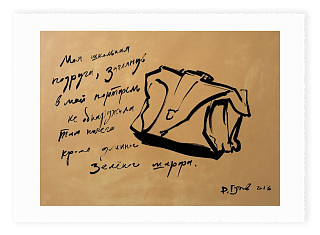 Моя школьная
подруга, заглянув
в мой портфель
не обнаружила
там ничего
кроме длинного
зелёного шарфа.
Р. Гуев 2013